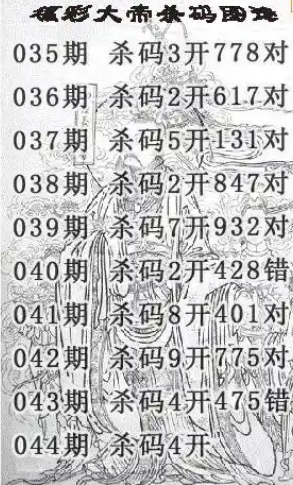 福彩大帝杀码图
035期 杀码3开778对
036期 杀码2开617对
037期 杀码5开131对
038期 杀码2开847对
039期 杀码7开932对
040期 杀码2开428错
041期 杀码8开401对
042期 杀码9开775对
043期 杀码4开475错
044期 杀码4开